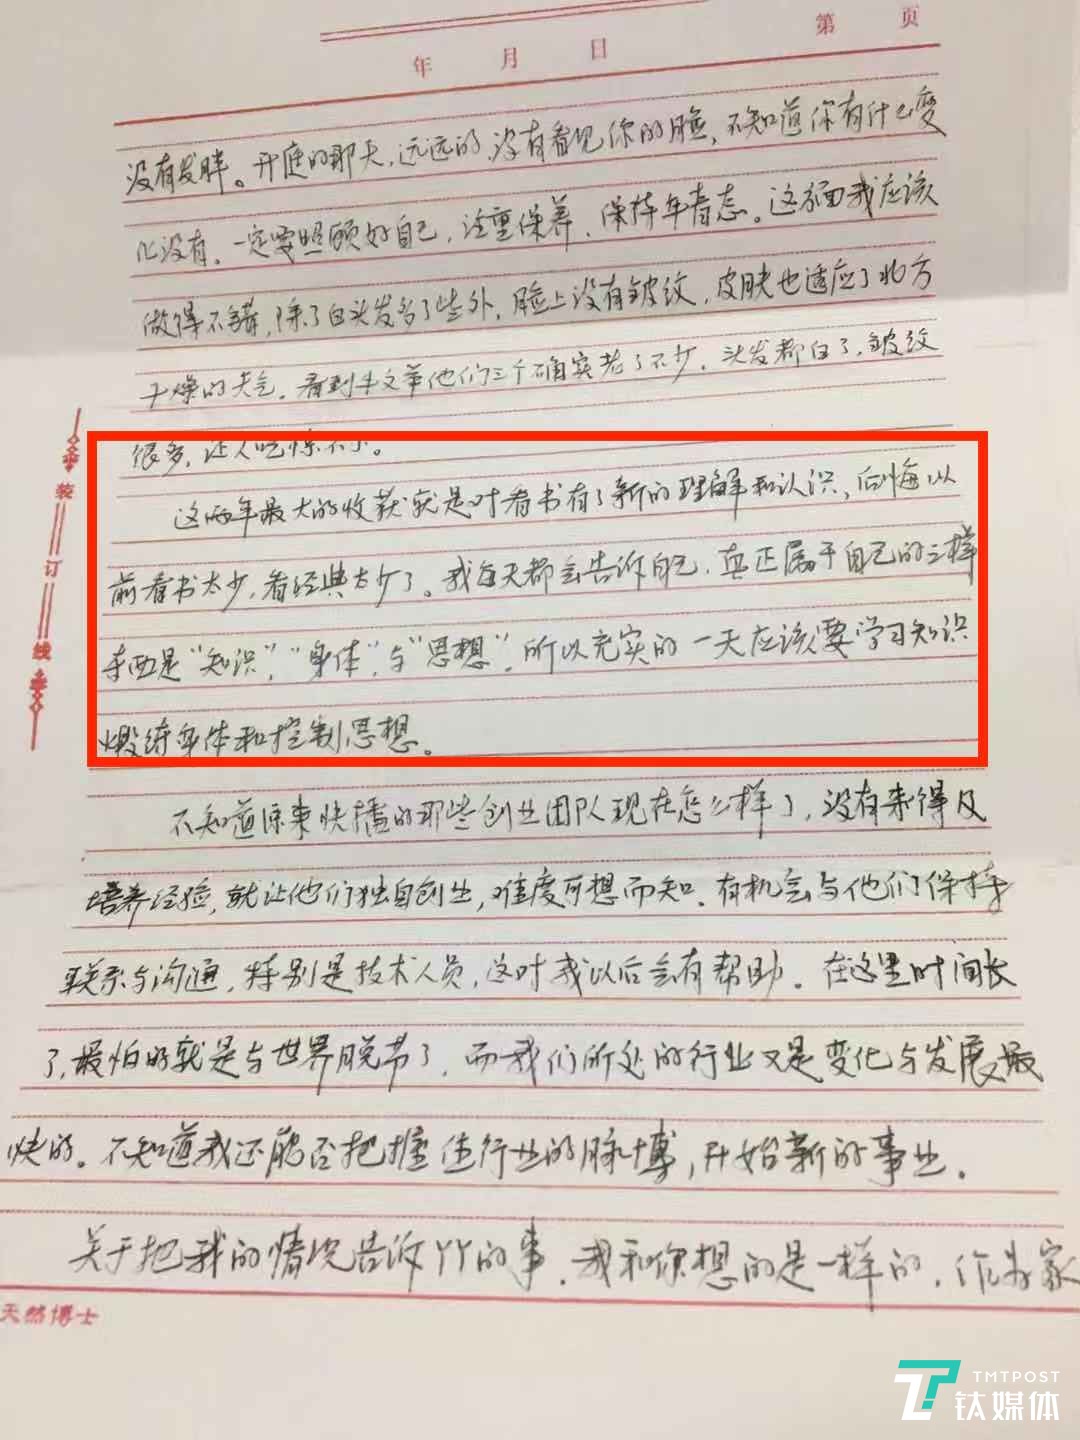 第 页
年 月 日
没有发胖。开庭的那天，远远的，没有看见你的脸，不知道你有什么变
化没有，一定要照顾好自己，注重保养，保持年青态。这方面我应该
做得不错，除了白头发多了些外，脸上没有皱纹，皮肤也适应了北方
干燥的天气。看到牛文举他们三个确实老了不少，头发都白了，皱纹
很多，让人吃惊不小。
这两年最大的收获就是对看书有了新的理解和认识，后悔以
前看书太少，看经典太少了。我每天都会告诉自己，真正属于自己的三样
东西是“知识”，“身体”，与“思想”，所以充实的一天应该要学习知识
煅练身体和控制思想。
不知道原来快播的那些创业团队现在怎么样了，没有来得及
培养经验，就让他们独自创业，难度可想而知。有机会与他们保持
联系与沟通，特别是技术人员，这对我以后会有帮助。在这里时间长
了，最怕的就是与世界脱节了，而我们所处的行业又是变化与发展最
快的。不知道我还能否把握住行业的脉博，开始新的事业。
关于把我的情况告诉丫丫的事，我和你想的是一样的，作为家
装
订
线
天然博士
TMTPOST
钛媒体